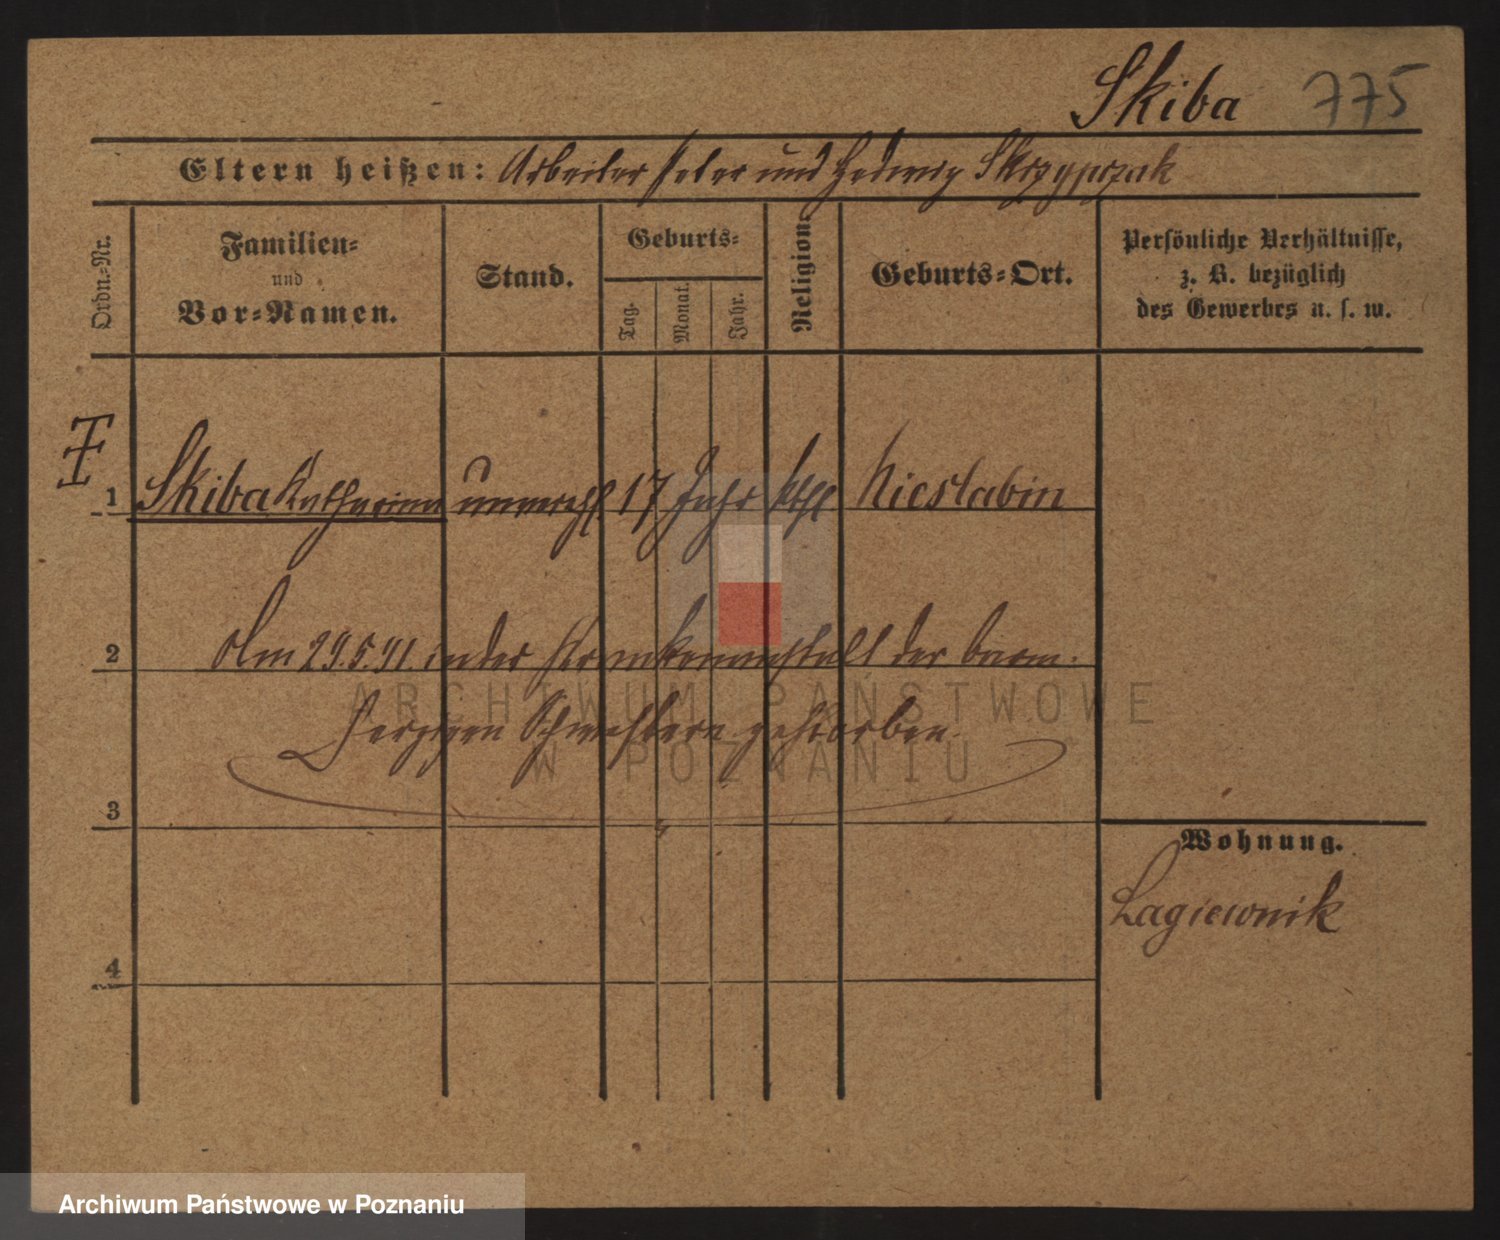 Skiba 775
Eltern heißen: Arbeiter Peter und Hedwig Skrzypczak
Ordn.=Nr.
Familien=
und
Vor=Namen.
Stand.
Geburts=
Tag.
Monat.
Jahr.
Religion.
Geburts=Ort.
Persönliche Verhältnisse,
z. B. bezüglich
des Gewerbes u. s. w.
1 Skiba Katharina unverehl. 17 Jahr kth Nieslabin
2 Am 29.5.91. in der Krankenanstalt der barm=
herzigen Schwestern gestorben.
3
Wohnung.
Lagiewnik
4
ARCHIWUM PAŃSTWOWE
W POZNANIU
Archiwum Państwowe w Poznaniu